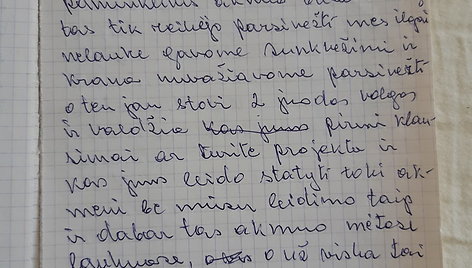 tas tik reikėjo parsinešti mes ilgai
nelaukę gavome sunkvežimi ir
krana nuvažiavome parsinešti
o ten jau stovi 2 juodos volgos
ir valdžia kas jums pirmi klau-
simai ar turite projekta ir
kas jums leido statyti toki ak-
meni be mūsu leidimo taip
ir dabar tas akmuo mėtosi
laukuose, o už viska tai